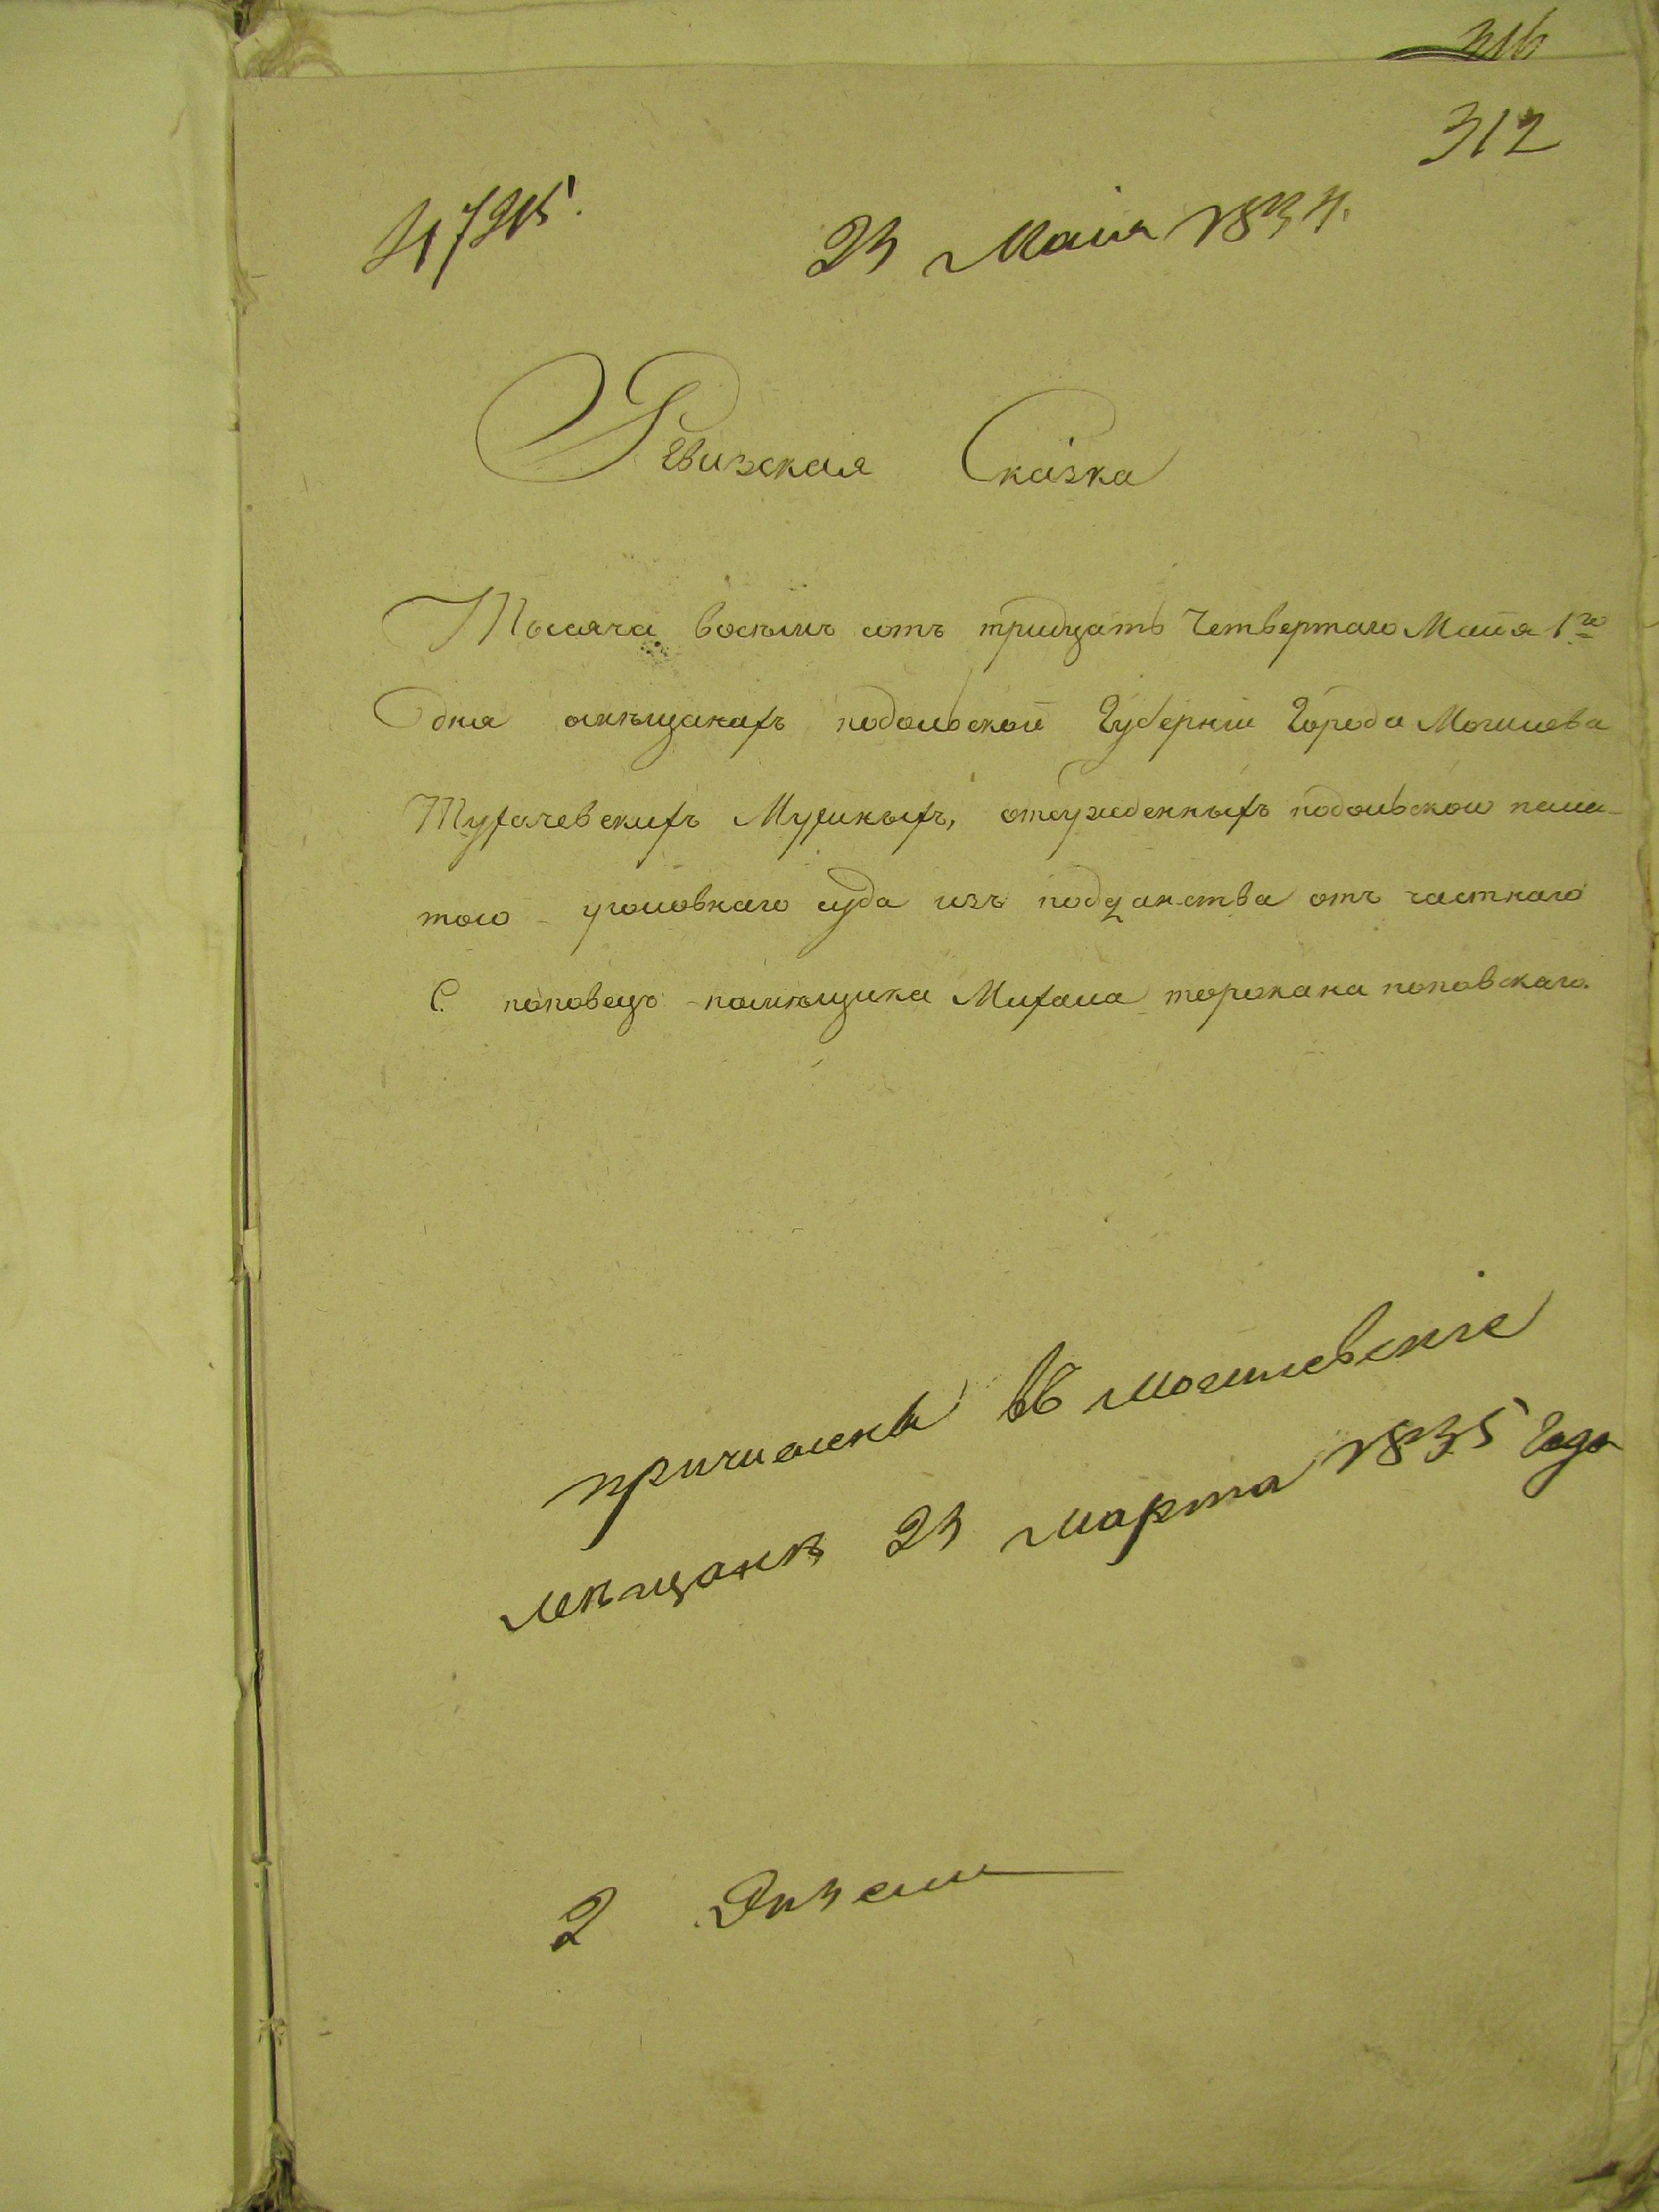 316
312
23 Маия 1834.
Ревизская Сказка
Тысяча восемь сотъ тридцать Четвертаго Маия 1го
дня омѣщанахъ подольской Губерніи Города Могилева
Тухачевскихъ Мухиныхъ, отсужденныхъ подольскою пала-
тою уголовнаго суда изъ подданства отъ частнаго
С. поповецъ помѣщика Михала торокана поповскаго.
причислены въ могилевскіе
мѣщане 23 марта 1835 Года
2 Экзем